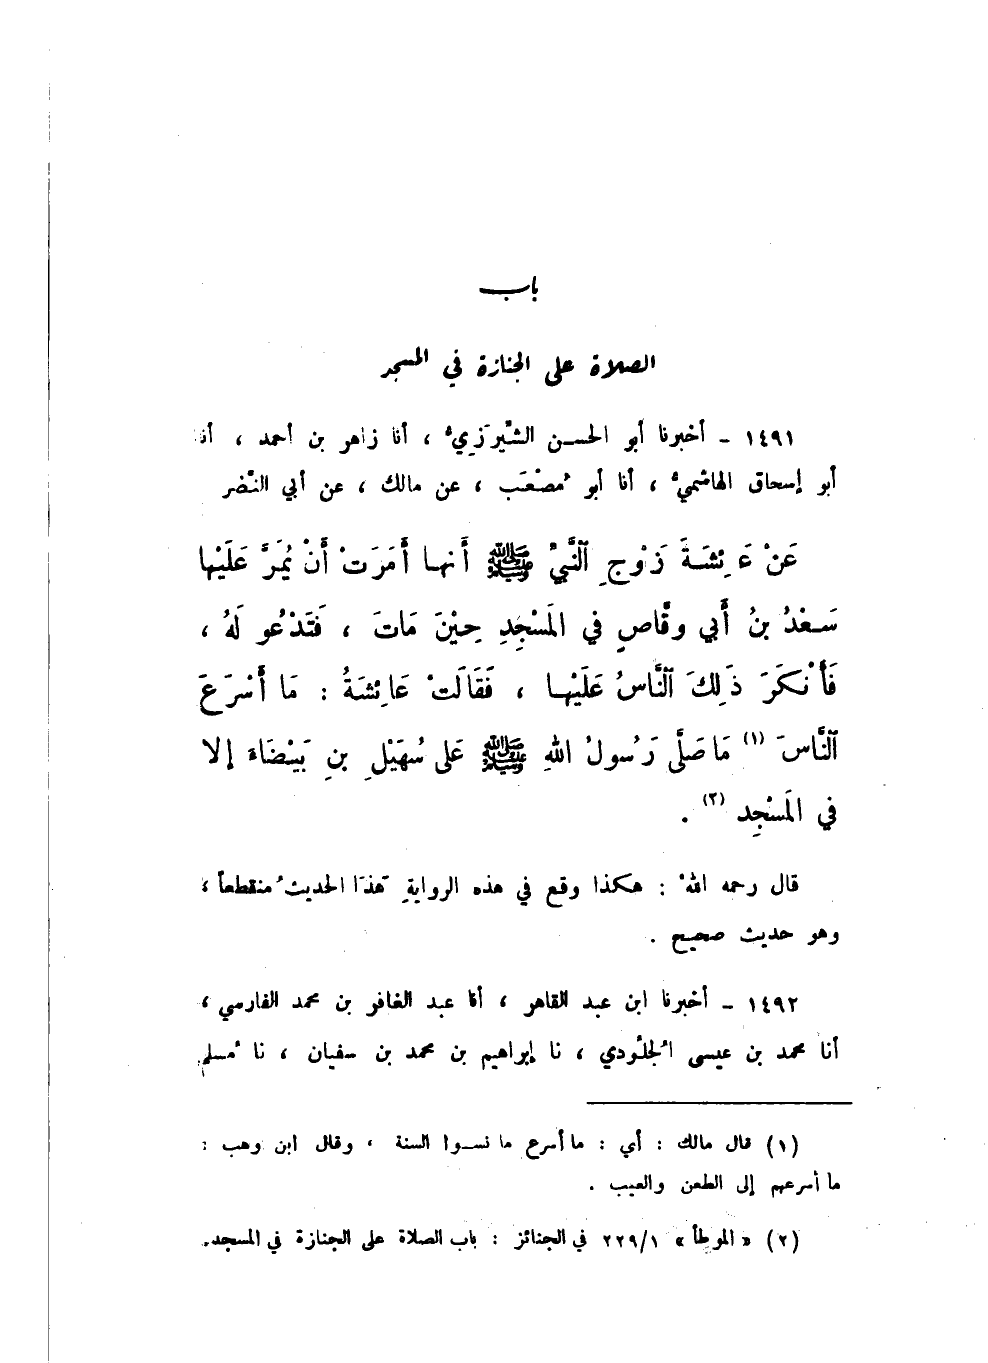 باب
الصلاة على الجنازة في المسجد
١٤٩١ - أخبرنا أبو الحسن الشّيرَزيُّ ، أنا زاهر بن أحمد ، أنا
أبو إسحاق الهاشميُّ ، أنا أبو مُصْعَب ، عن مالك ، عن أبي النّضر
عَنْ عَائِشَةَ زَوْجِ ٱلنَّبيِّ ﷺ أَنها أَمَرَتْ أَنْ يُمَرَّ عَلَيْها
سَعْدُ بنُ أَبي وقَّاصٍ في المَسْجِدِ حِيْنَ مَاتَ ، فَتَدْعُو لَهُ ،
فَأَنْكَرَ ذَلِكَ ٱلنَّاسُ عَلَيْها ، فَقَالَتْ عَائِشَةُ : مَا أَسْرَعَ
ٱلنَّاسَ (١) مَا صَلَّى رَسُولُ اللهِ ﷺ عَلى سُهَيْلِ بنِ بَيْضَاءَ إِلا
في المَسْجِدِ (٢) .
قال رحمه اللهُ : هكذا وقع في هذه الروايةِ هَذَا الحديثُ منقطعاً ،
وهو حديث صحيح .
١٤٩٢ - أخبرنا ابن عبد القاهر ، أنا عبد الغافر بن محمد الفارسي ،
أنا محمد بن عيسى الجُلُودي ، نا إبراهيم بن محمد بن سفيان ، نا مُسلم
(١) قال مالك : أي : ما أسرع ما نسوا السنة ، وقال ابن وهب :
ما أسرعهم إلى الطعن والعيب .
(٢) « الموطأ » ٢٢٩/١ في الجنائز : باب الصلاة على الجنازة في المسجد.